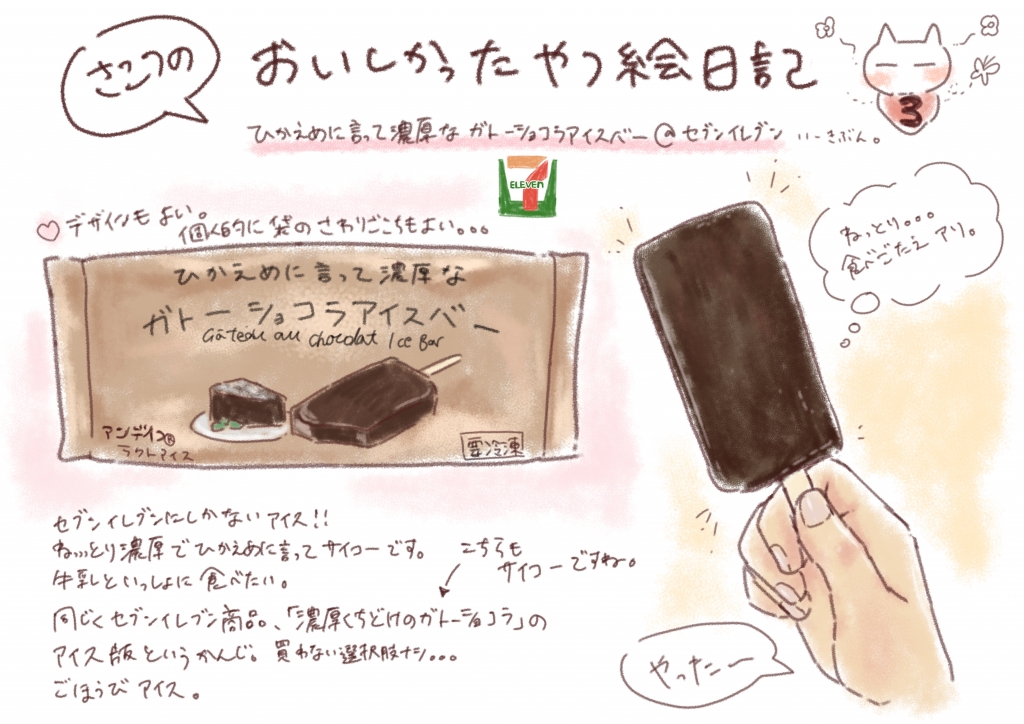 さつつの
おいしかったやつ絵日記
3
ひかえめに言って濃厚な ガトーショコラアイスバー @ セブンイレブン いーきぶん。
7
ELEVEn
デザインもよい。
個人的に袋のさわりごこちもよい。。。
ひかえめに言って濃厚な
ガトーショコラアイスバー
Gâteau au chocolat Ice Bar
アンデイコ®
ラクトアイス
要冷凍
ねっとり。。。
食べごたえアリ。
セブンイレブンにしかないアイス!!
ねっとり濃厚でひかえめに言ってサイコーです。
牛乳といっしょに食べたい。
こちらも
サイコーですね。
同じくセブンイレブン商品、「濃厚くちどけのガトーショコラ」の
アイス版というかんじ。買わない選択肢ナシ...
ごほうびアイス。
やったー